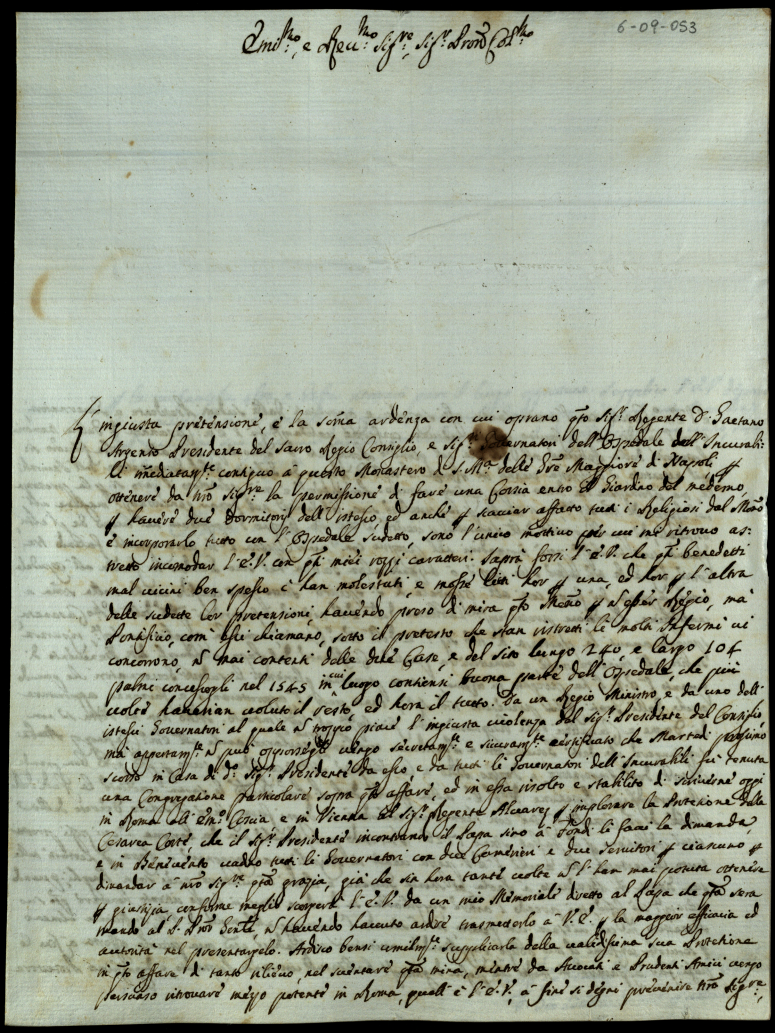 6-09-053
Emi.mo, e Reu.mo Sig.re, Sig.r Pron Col.mo
L'ingiusta pretensione, e la soma ardenza con cui oprano q̃to Sig.r Regente D. Gaetano
Argento Presidente del Sacro Regio Consiglio, e Sig.ri Governatori dell'Ospedale dell'Incurabi-
li imediatam.te contiguo a questo Monastero di S. M.a delle Gre Maggiore di Napoli p
ottenere da nro Sig.re la permissione di fare una Corsia entro il Giardino del medemo
p havere due Dormitorij dell'istesso, ed anche p scacciar affatto tutti i Religiosi dal Mon.o
è incorporarlo tutto con l'Ospedale sudetto, sono l'unico motivo per cui mi ritrovo as-
tretto incomodar l'E.V. con q̃ti miei rozzi caratteri. Saprà forsi l'E.V. che q̃ti benedetti
mal vicini ben spesso ci han molestati, e mosse liti hor p una, ed hor p l'altra
delle sudette lor pretensioni, havendo preso di mira q̃to Mon.o p ñ esser Regio, ma
Pontificio, com'essi chiamano, sotto il pretesto che stan ristretti li molti Infermi vi
concorrono, ñ mai contenti delle dieci Case, e del sito lungo 240, e largo 104
palmi concessogli nel 1545 in cui luogo contiensi buona parte dell'Ospedale, che più
volte haverian voluto il resto, ed hora il tutto. Da un Regio Ministro, e da uno dell'
istessi Governatori al quale ñ troppo piace l'ingiusta violenza del Sig.r Presidente del Consiglio,
ma appertam.te ñ può opporsegli vengo secretam.te e sicuram.te certificato che Martedì prossimo
scorso in Casa di d.o Sig.r Presidente da esso e da tutti li Governatori dell'Incurabili fu tenuta
una Congregatione particolare sopra q̃to affare, ed in essa risolto e stabilito di scriverne oggi
in Roma all'Em.o Coscia e in Vienna al Sig.r Regente Alvarez p implorare la Protezione della
Cesarea Corte, che il Sig.r Presidente incontrando il Papa sino a Fondi li facci la dimanda,
e in Benevento vadino tutti li Governatori con due Camerieri e due servitori p ciascuno p
dimandar a nro Sig.re q̃ta grazia, già che sin hora tante volte ñ l'han mai potuta ottenere
p giustizia, conforme meglio scoprerà l'E.V. da un mio Memoriale diretto al Papa che q̃ta sera
mando al P. Pron Gen.le, ñ havendo havuto ardire trasmetterlo à V.E. p la maggior efficacia ed
autorità nel presentarlo. Ardisco bensi umilm.te supplicarla della validissima sua Protectione
in q̃to affare di tanto rilievo, nel sventare q̃ta mina, mentre da Avvocati e Prudenti Amici vengo
persuaso ritrovare mezzo potente in Roma, quall'è l'E.V. a fine si degni prevenire nro Sig.re,